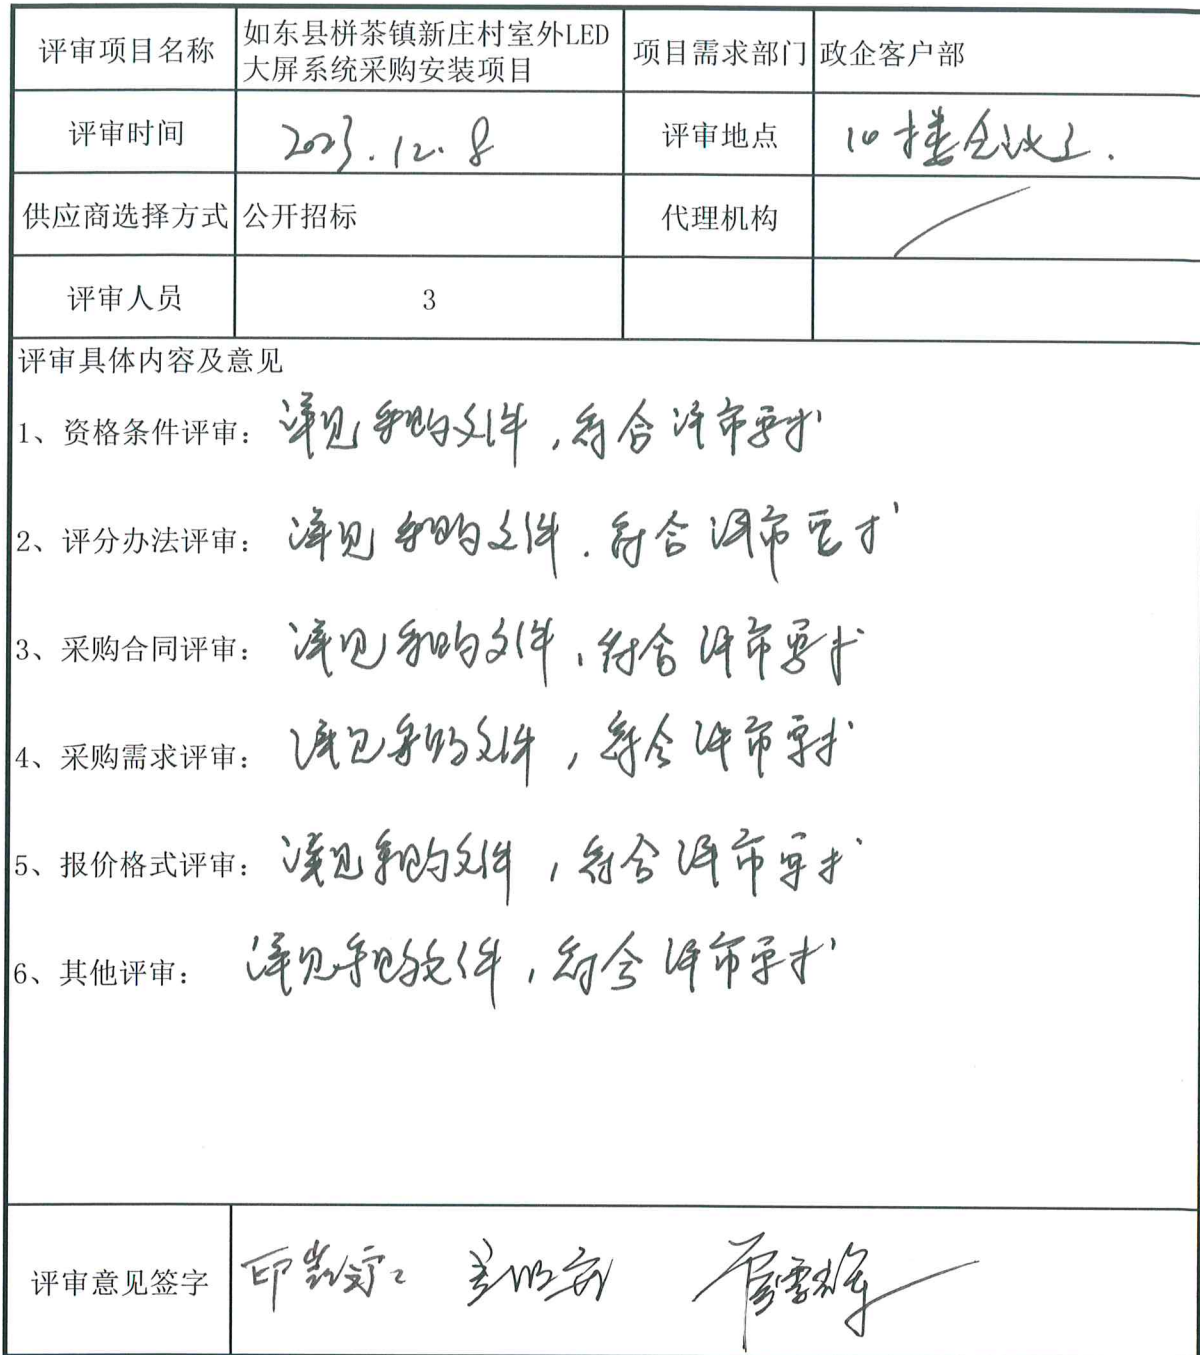 评审项目名称 如东县栟茶镇新庄村室外LED
大屏系统采购安装项目 项目需求部门 政企客户部
评审时间 2023.12.8 评审地点 10楼会议室.
供应商选择方式 公开招标 代理机构
评审人员 3
评审具体内容及意见
1、资格条件评审：详见采购文件，符合评审要求
2、评分办法评审：详见采购文件，符合评审要求
3、采购合同评审：详见采购文件，符合评审要求
4、采购需求评审：详见采购文件，符合评审要求
5、报价格式评审：详见采购文件，符合评审要求
6、其他评审：详见采购文件，符合评审要求
评审意见签字